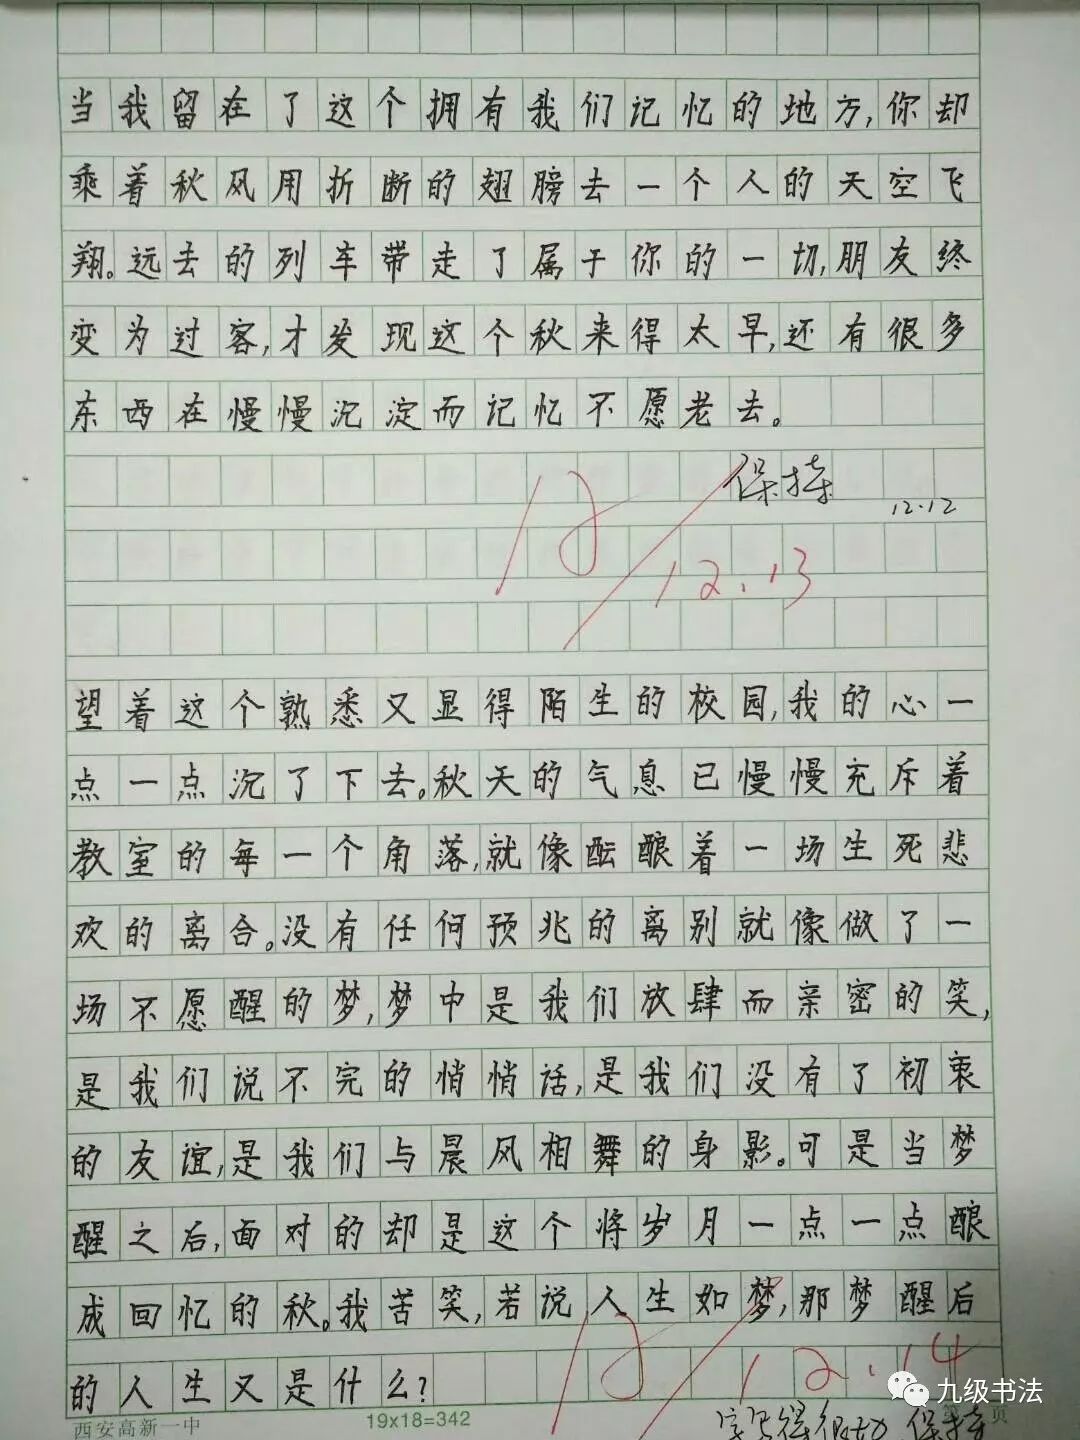 当我留在了这个拥有我们记忆的地方,你却
乘着秋风用折断的翅膀去一个人的天空飞
翔。远去的列车带走了属于你的一切,朋友终
变为过客,才发现这个秋来得太早,还有很多
东西在慢慢沉淀而记忆不愿老去。
保持
12.12
12.13
望着这个熟悉又显得陌生的校园,我的心一
点一点沉了下去。秋天的气息已慢慢充斥着
教室的每一个角落,就像酝酿着一场生死悲
欢的离合。没有任何预兆的离别就像做了一
场不愿醒的梦,梦中是我们放肆而亲密的笑,
是我们说不完的悄悄话,是我们没有了初衷
的友谊,是我们与晨风相舞的身影。可是当梦
醒之后,面对的却是这个将岁月一点一点酿
成回忆的秋。我苦笑,若说人生如梦,那梦醒后
的人生又是什么?
12.14
西安高新一中 19x18=342 页
九级书法
保持